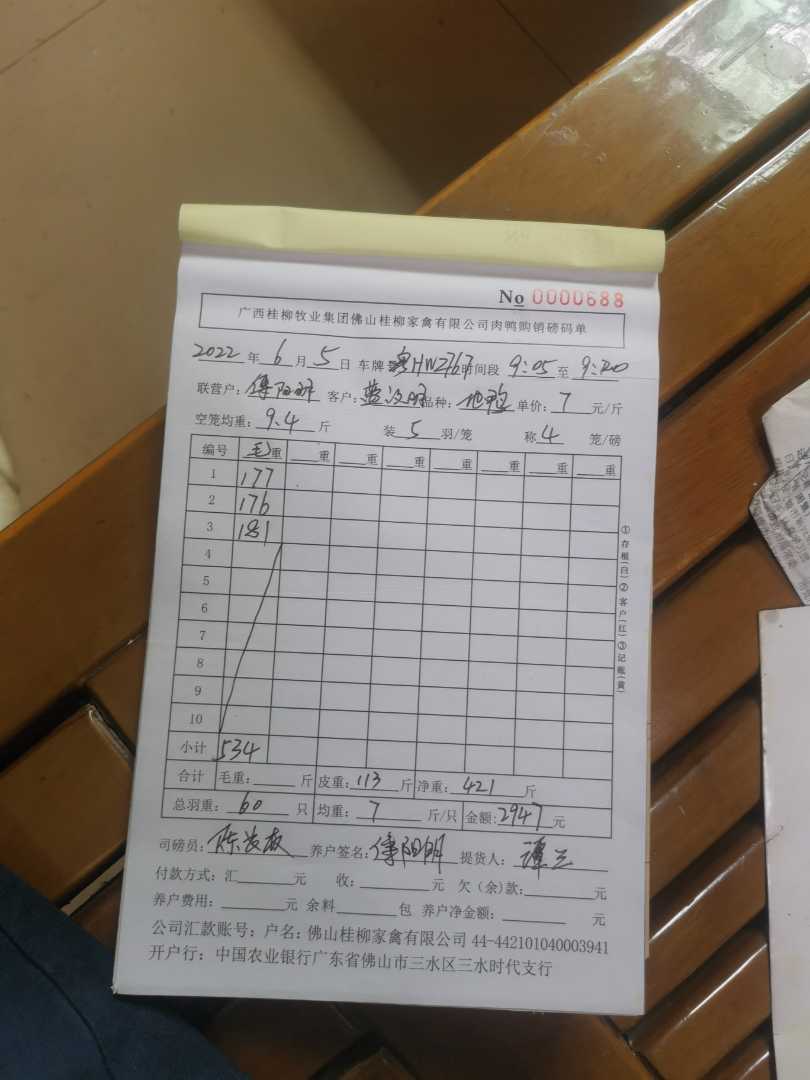 No 0000688
广西桂柳牧业集团佛山桂柳家禽有限公司肉鸭购销磅码单
2022 年 6 月 5 日 车牌: 粤HW2767 时间段 9:05 至 9:20
联营户: 客户: 品种: 单价: 7 元/斤
空笼均重: 9.4 斤 装 5 羽/笼 称 4 笼/磅
编号 毛重 重 重 重 重 重 重 重
1 177
2 176
3 181
4
5
6
7
8
9
10
小计 534
合计 毛重: 斤 皮重: 113 斤 净重: 421 斤
总羽重: 60 只 均重: 7 斤/只 金额: 2947 元
司磅员: 养户签名: 傅阳明 提货人:
付款方式: 汇 元 收: 元 欠(余)款: 元
养户费用: 元 余料 包 养户净金额: 元
公司汇款账号: 户名: 佛山桂柳家禽有限公司 44-442101040003941
开户行: 中国农业银行广东省佛山市三水区三水时代支行
①存根(白)②客户(红)③记账(黄)